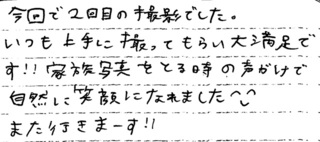 今回で2回目の撮影でした。
いつも上手に撮ってもらい大満足で
す!! 家族写真をとる時の声がけで
自然に笑顔になれました^^
また行きまーす!!